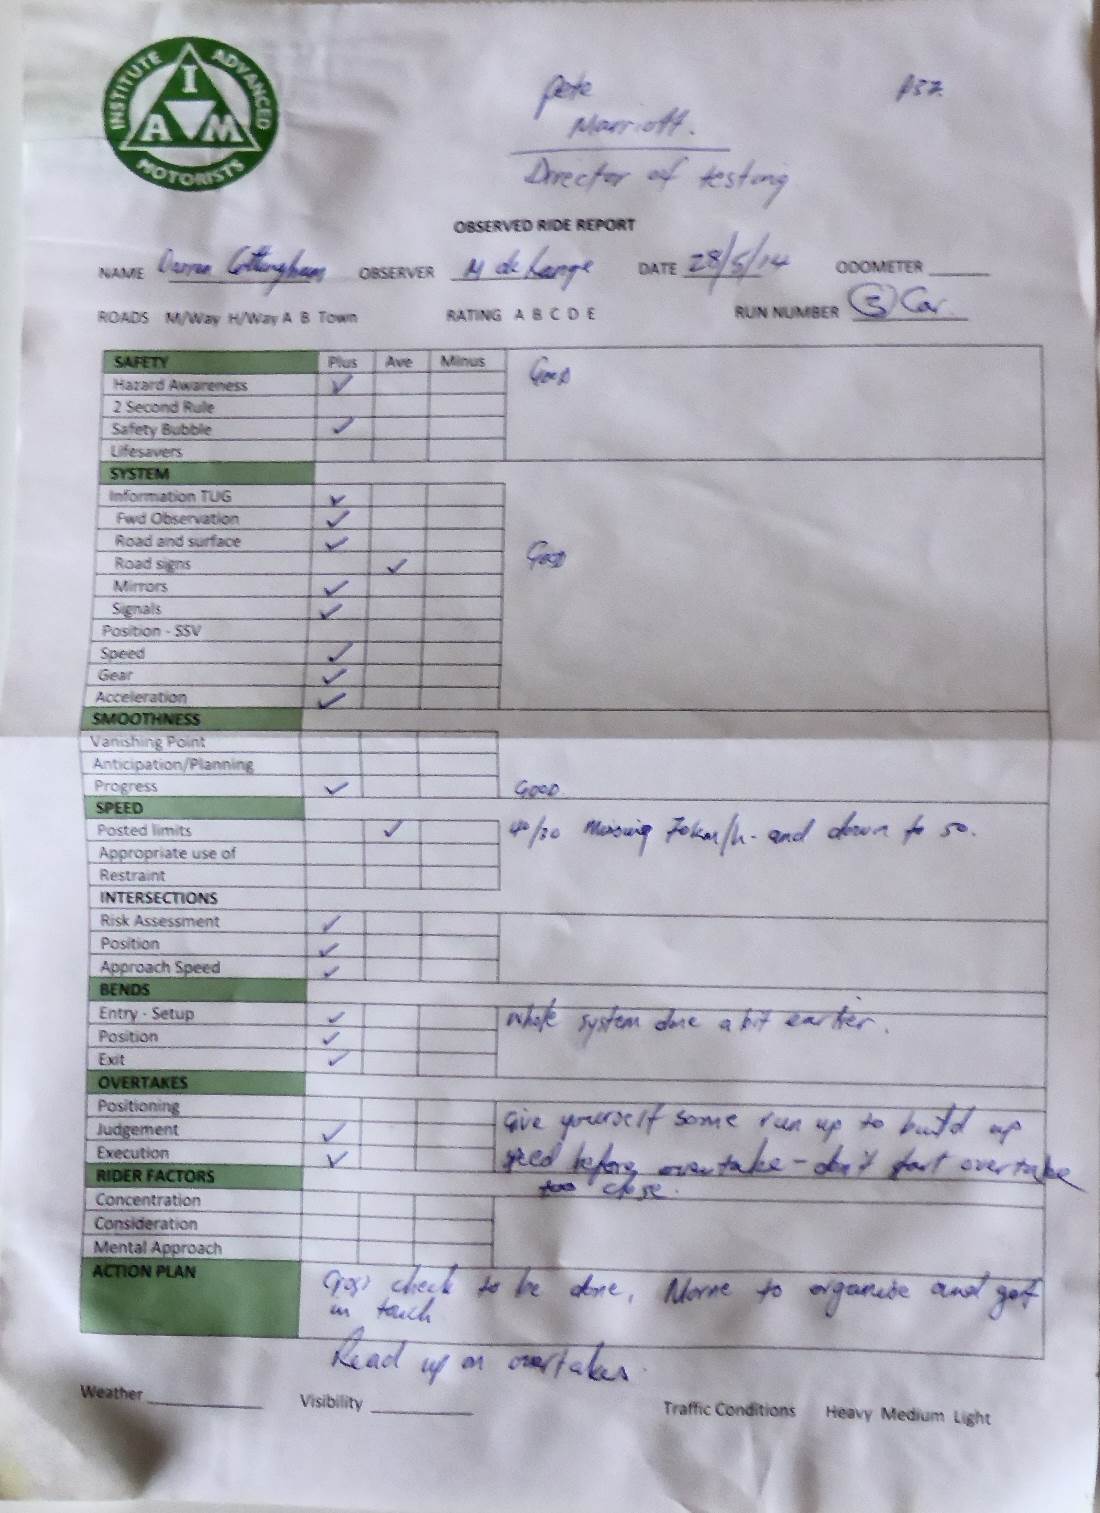 INSTITUTE ADVANCED MOTORISTS
I
A M
Pete
Marriott.
Director of testing
OBSERVED RIDE REPORT
NAME Darren Cottingham OBSERVER M de Lange DATE 28/5/14 ODOMETER
ROADS M/Way H/Way A B Town RATING A B C D E RUN NUMBER 3 Car
SAFETY Plus Ave Minus
Good
Hazard Awareness ✓
2 Second Rule
Safety Bubble ✓
Lifesavers
SYSTEM
Information TUG ✓
Fwd Observation ✓
Road and surface ✓
Good
Road signs ✓
Mirrors ✓
Signals ✓
Position - SSV
Speed ✓
Gear ✓
Acceleration ✓
SMOOTHNESS
Vanishing Point
Anticipation/Planning
Progress ✓ Good
SPEED
Posted limits ✓ missing 70km/h - and down to 50.
Appropriate use of
Restraint
INTERSECTIONS
Risk Assessment ✓
Position ✓
Approach Speed ✓
BENDS
Entry - Setup ✓ whole system done a bit earlier.
Position ✓
Exit ✓
OVERTAKES
Positioning
Give yourself some run up to build up
Judgement ✓
Execution ✓ speed before overtake - don't start overtake
too close.
RIDER FACTORS
Concentration
Consideration
Mental Approach
ACTION PLAN Cross check to be done, Morne to organise and get
in touch
Read up on overtakes.
Weather Visibility Traffic Conditions Heavy Medium Light